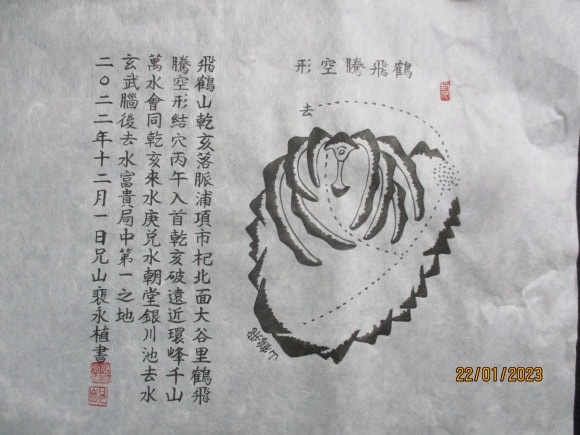 鶴飛騰空形
去
飛鶴山
飛鶴山乾亥落脈浦項市杞北面大谷里鶴飛
騰空形結穴丙午入首乾亥破遠近環峰千山
萬水會同乾亥來水庚兌水朝堂銀川池去水
玄武腦後去水富貴局中第一之地
二〇二二年十二月一日兄山裵永植書
22/01/2023